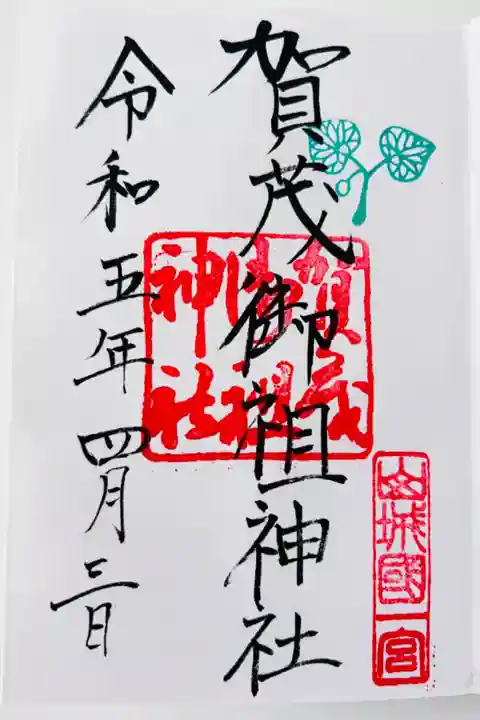 賀茂御祖神社
山城國一宮
賀茂御祖神社
令和五年四月三日